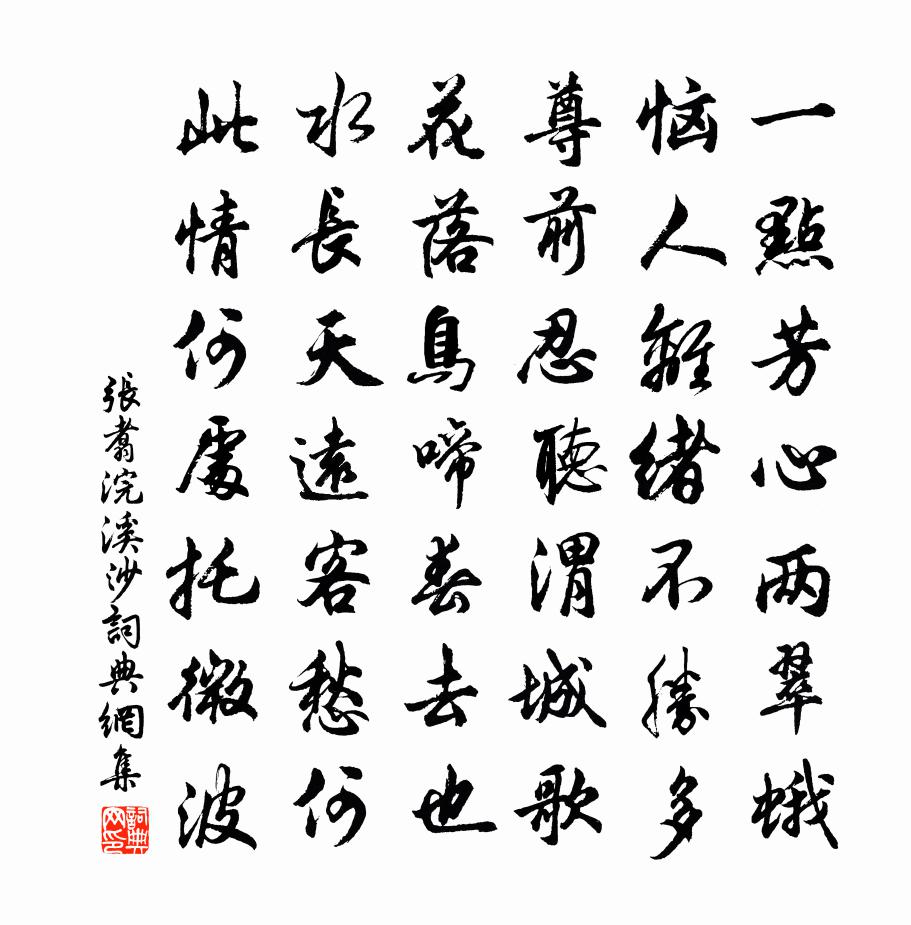 一點芳心两翠蛾
惱人離緒不勝多
尊前忍聽渭城歌
花落鳥啼春去也
水長天遠客愁何
此情何處托微波
張翥浣溪沙詞典網集
詞典网印